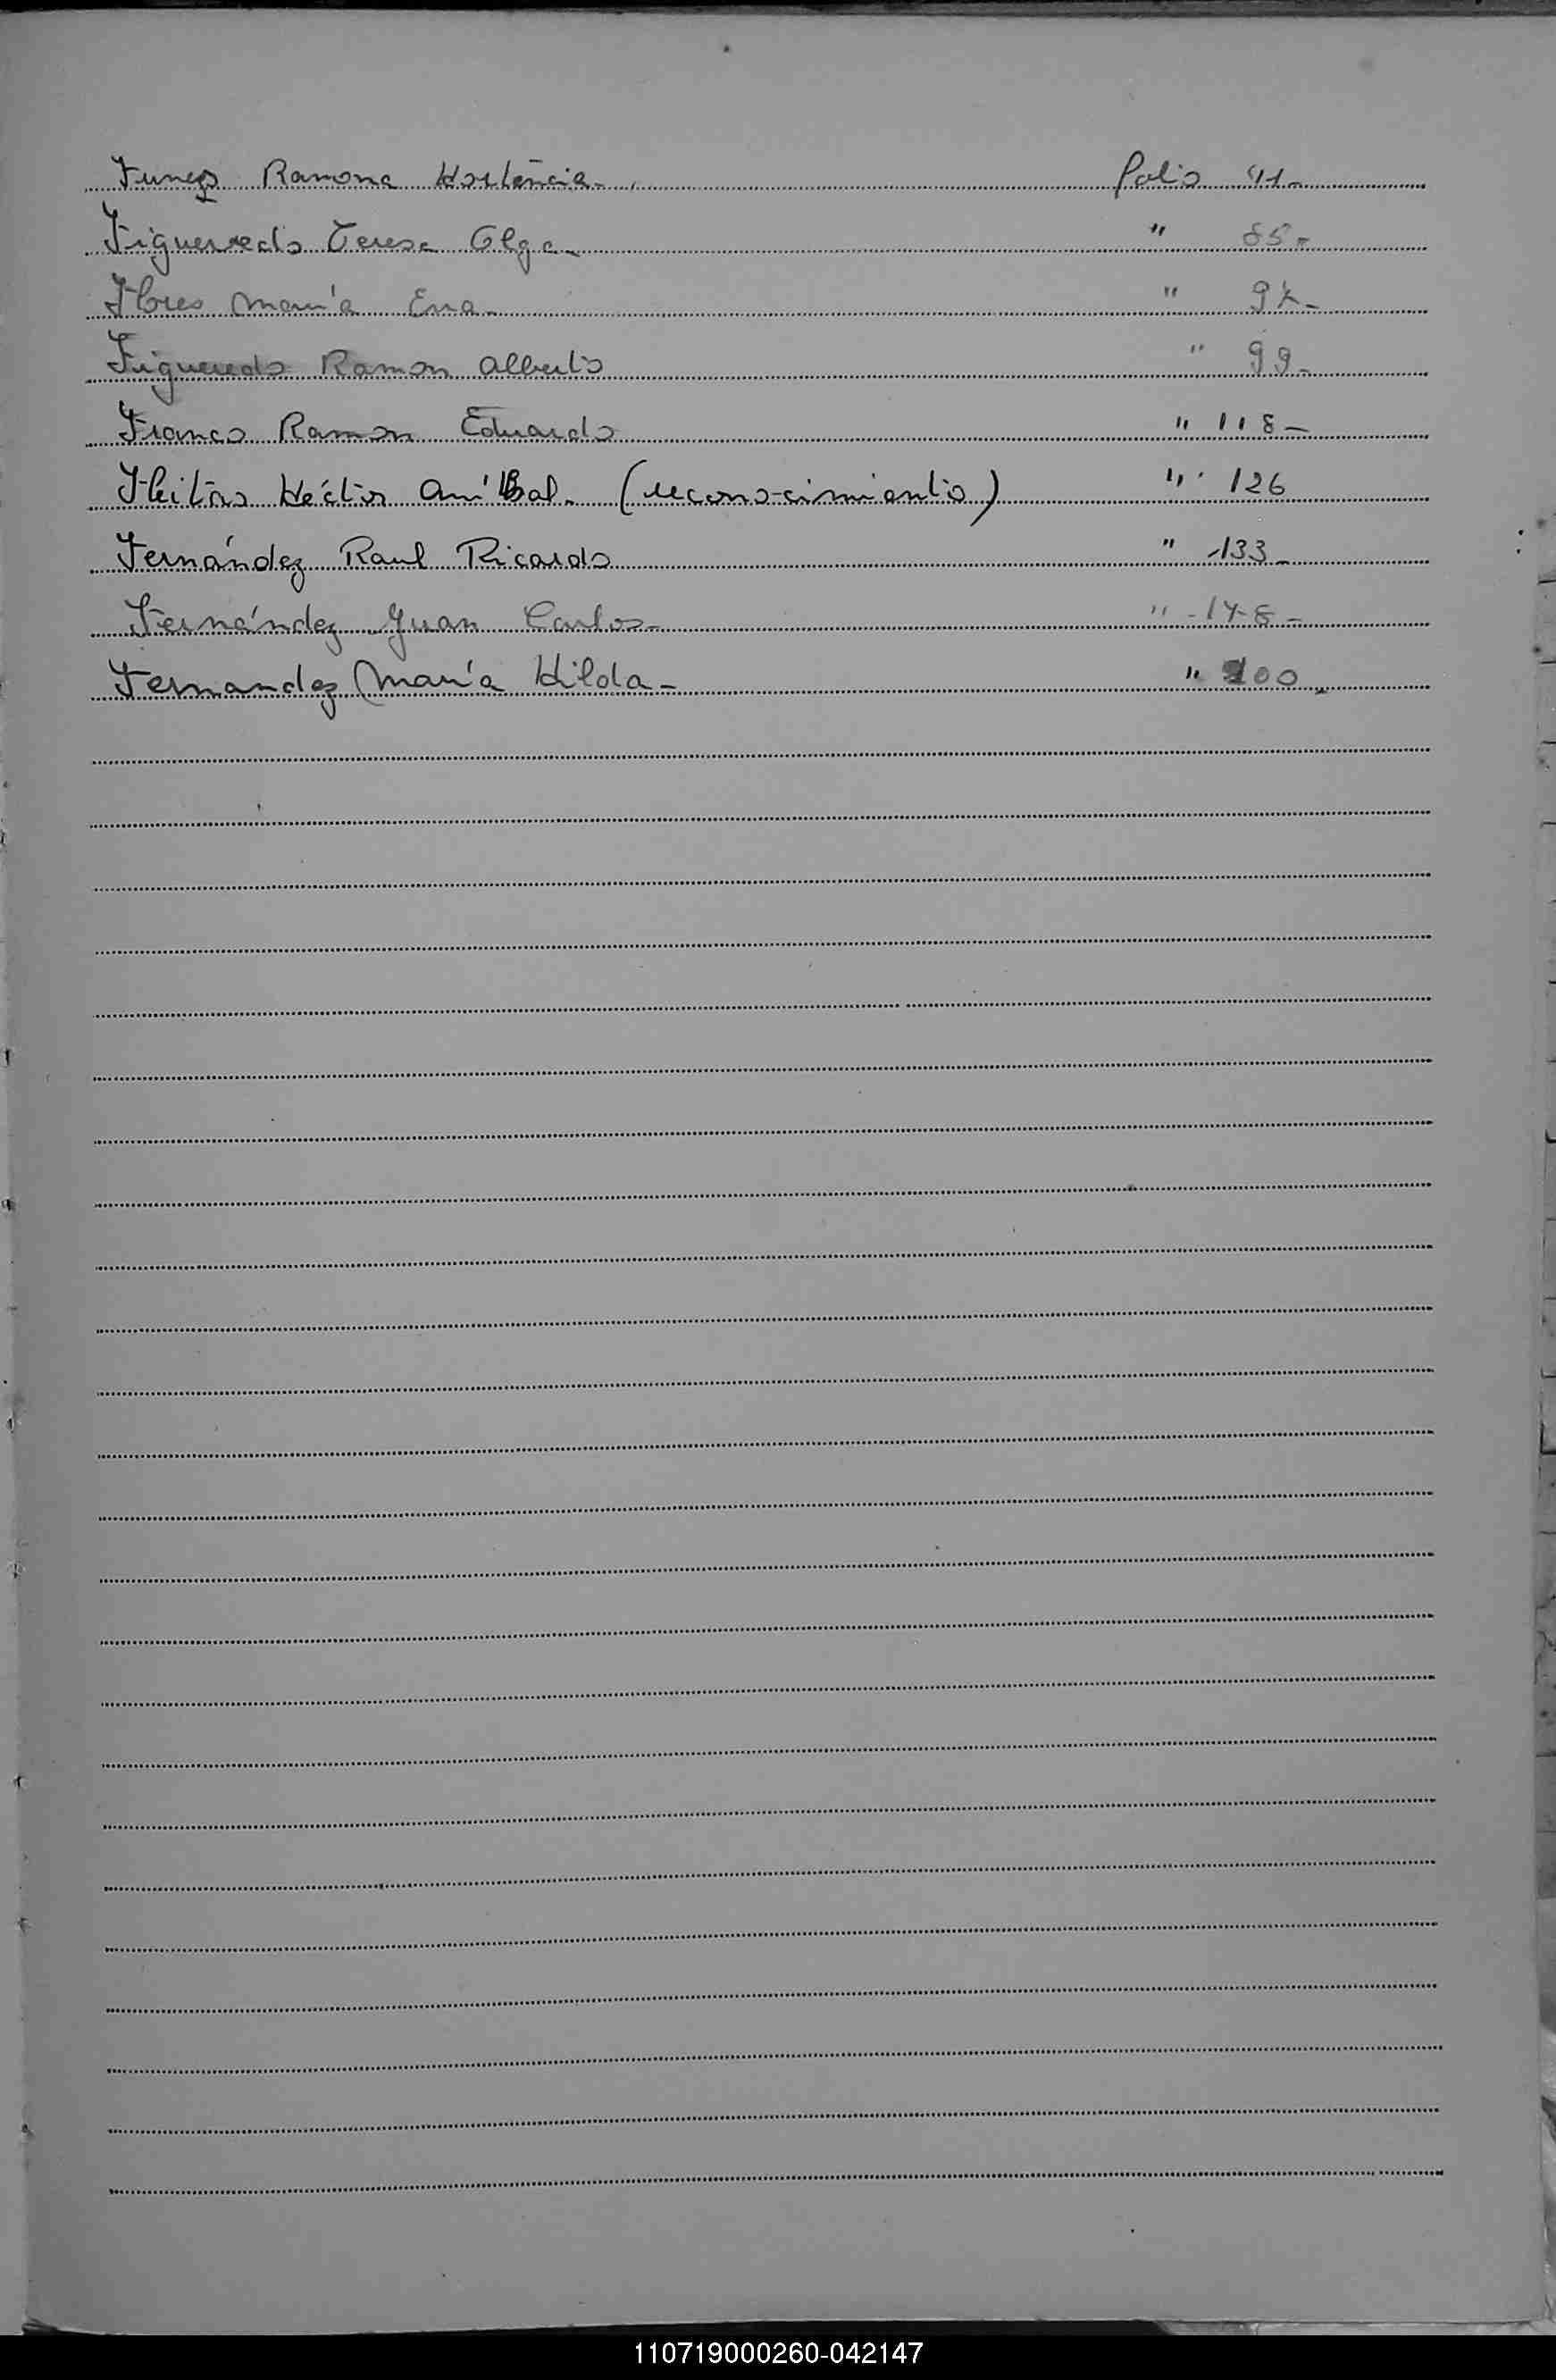 Funez Ramona Hortencia. Folio 41-
Figueredo Teresa Olga- " 85-
Flores María Ena- " 97-
Figueredo Ramon Alberto " 99-
Franco Ramon Eduardo " 118-
Fleitas Héctor Aníbal. (reconocimiento) " 126
Fernández Raul Ricardo " 133-
Fernández Juan Carlos- " 148-
Fernandez María Hilda- " 200-
110719000260-042147